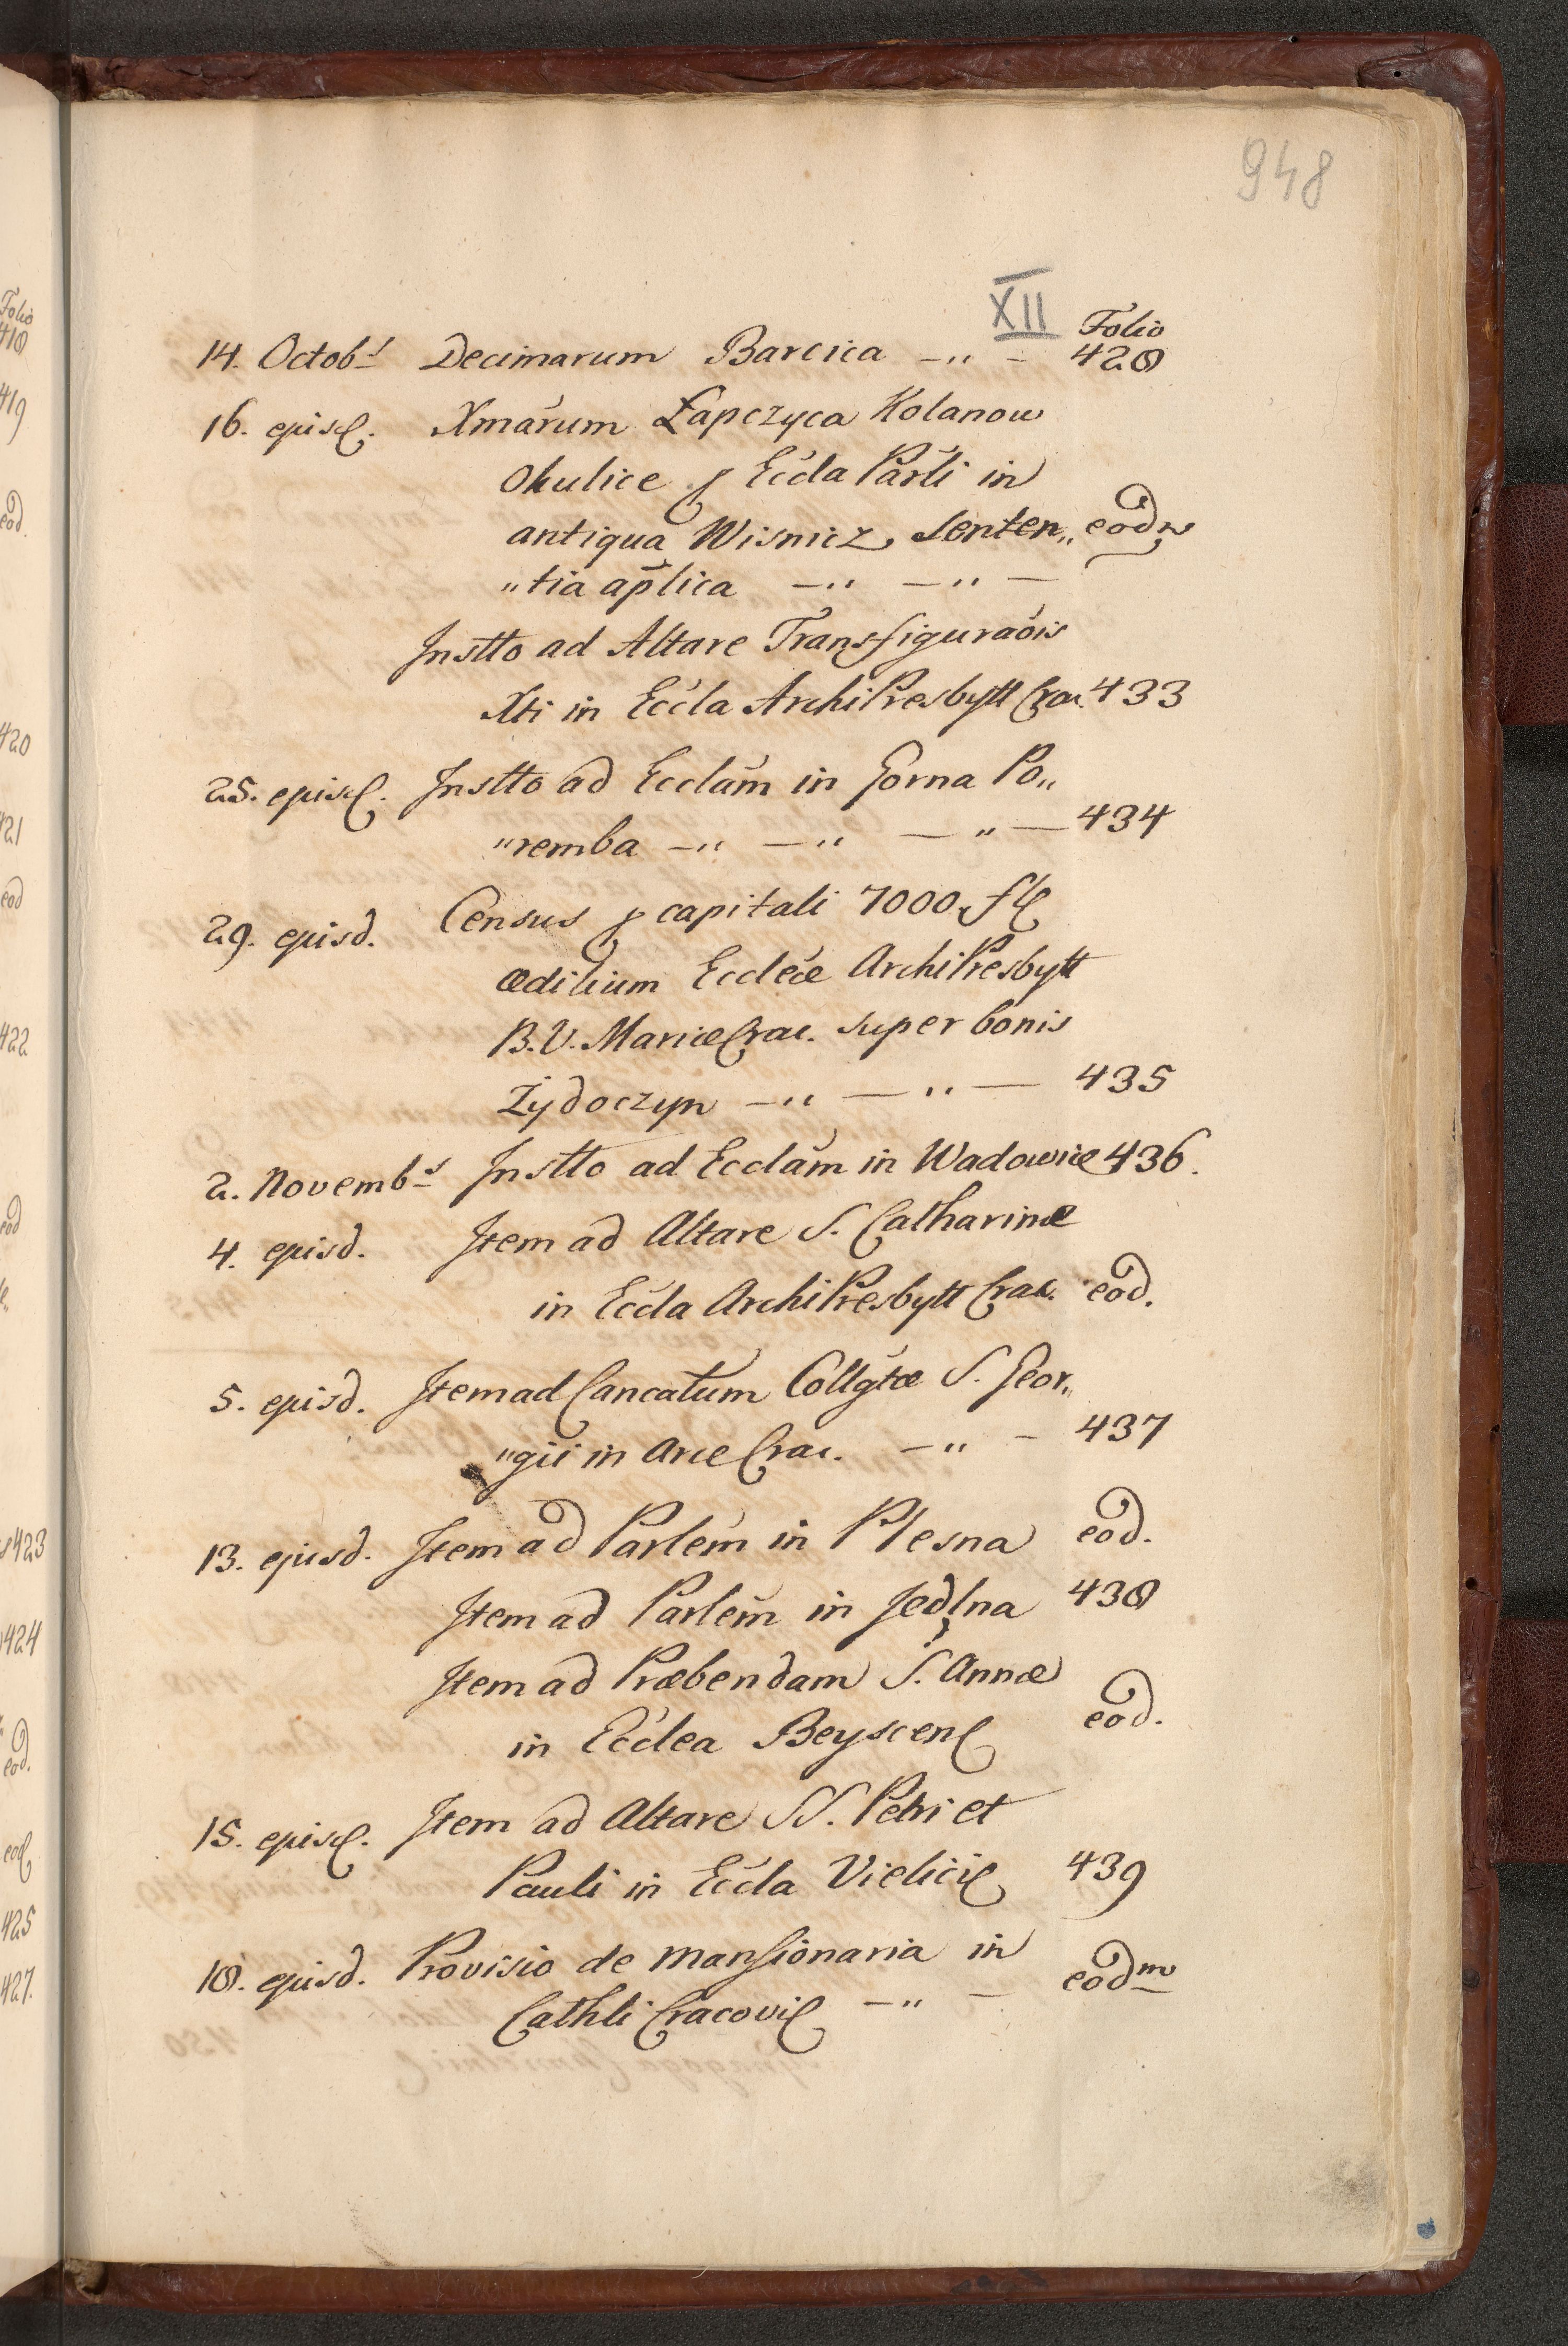 948
XII
Folio
14. Octobs Decimarum Barcica —„ – 428
16. ejusd. Xmarum Łapczyca Kolanow
Okulice p Eccla Parli in
antiqua Wisnicz Senten„ eodm
„tia aplica —„ —„ —
Instto ad Altare Transfiguraois
Xti in Eccla ArchiPresbytt Crac. 433
25. ejusd. Instto ad Ecclam in Gorna Po„
„remba —„ —„ —„— 434
29. ejusd. Census p capitali 7000 fl
ædilium Eccleæ ArchiPresbytt
B. V. Mariæ Crac. super bonis
Zydoczyn —„ —„ — 435
2. Novembs Instto ad Ecclam in Wadowice 436.
4. ejusd. Item ad Altare S. Catharinæ
in Eccla ArchiPresbytt Crac. eod.
5. ejusd. Item ad Cancatum Collgtæ S. Geor„
„gii in Arce Crac. —„ – 437
13. ejusd. Item ad Parlem in Plesna eod.
Item ad Parlem in Jedlna 438
Item ad Præbendam S. Annæ
in Ecclea Beyscen eod.
15. ejusd. Item ad Altare SS. Petri et
Pauli in Eccla Vielicie 439
18. ejusd. Provisio de Mansionaria in
Cathli Cracovie —„ – eodm
Folio
418
419
eod.
420
421
eod
422
eod
423
424
eod.
eod
425
427.